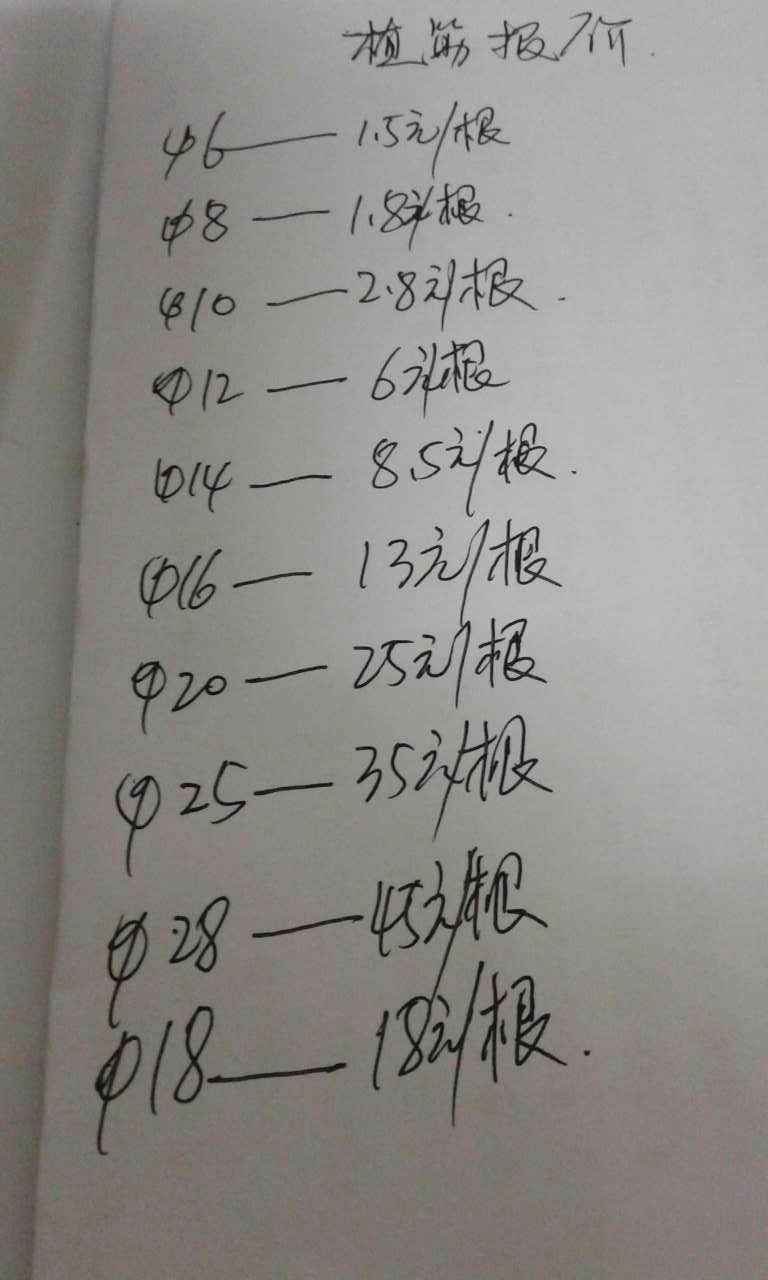 植筋报价.
φ6——1.5元/根
φ8——1.8元/根.
φ10——2.8元/根.
φ12——6元/根
φ14——8.5元/根.
φ16——13元/根
φ20——25元/根
φ25——35元/根
φ28——45元/根
φ18——18元/根.